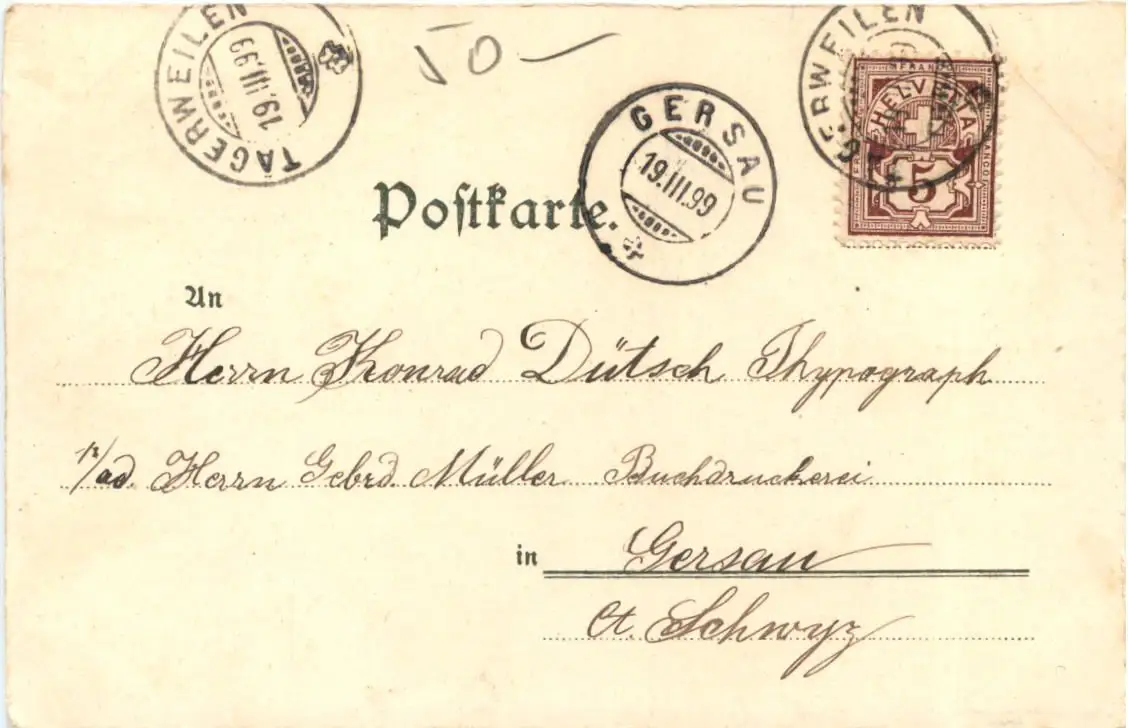 TÄGERWEILEN
19.III.99
50 —
GERSAU
19.III.99
TÄGERWEILEN
FRANCO
HELVETIA
FRANCO
5
Postkarte.
An
Herrn Konrad Dütsch Thypograph
/ad. Herrn Gebrd. Müller Buchdruckerei
in Gersau
Ct. Schwyz